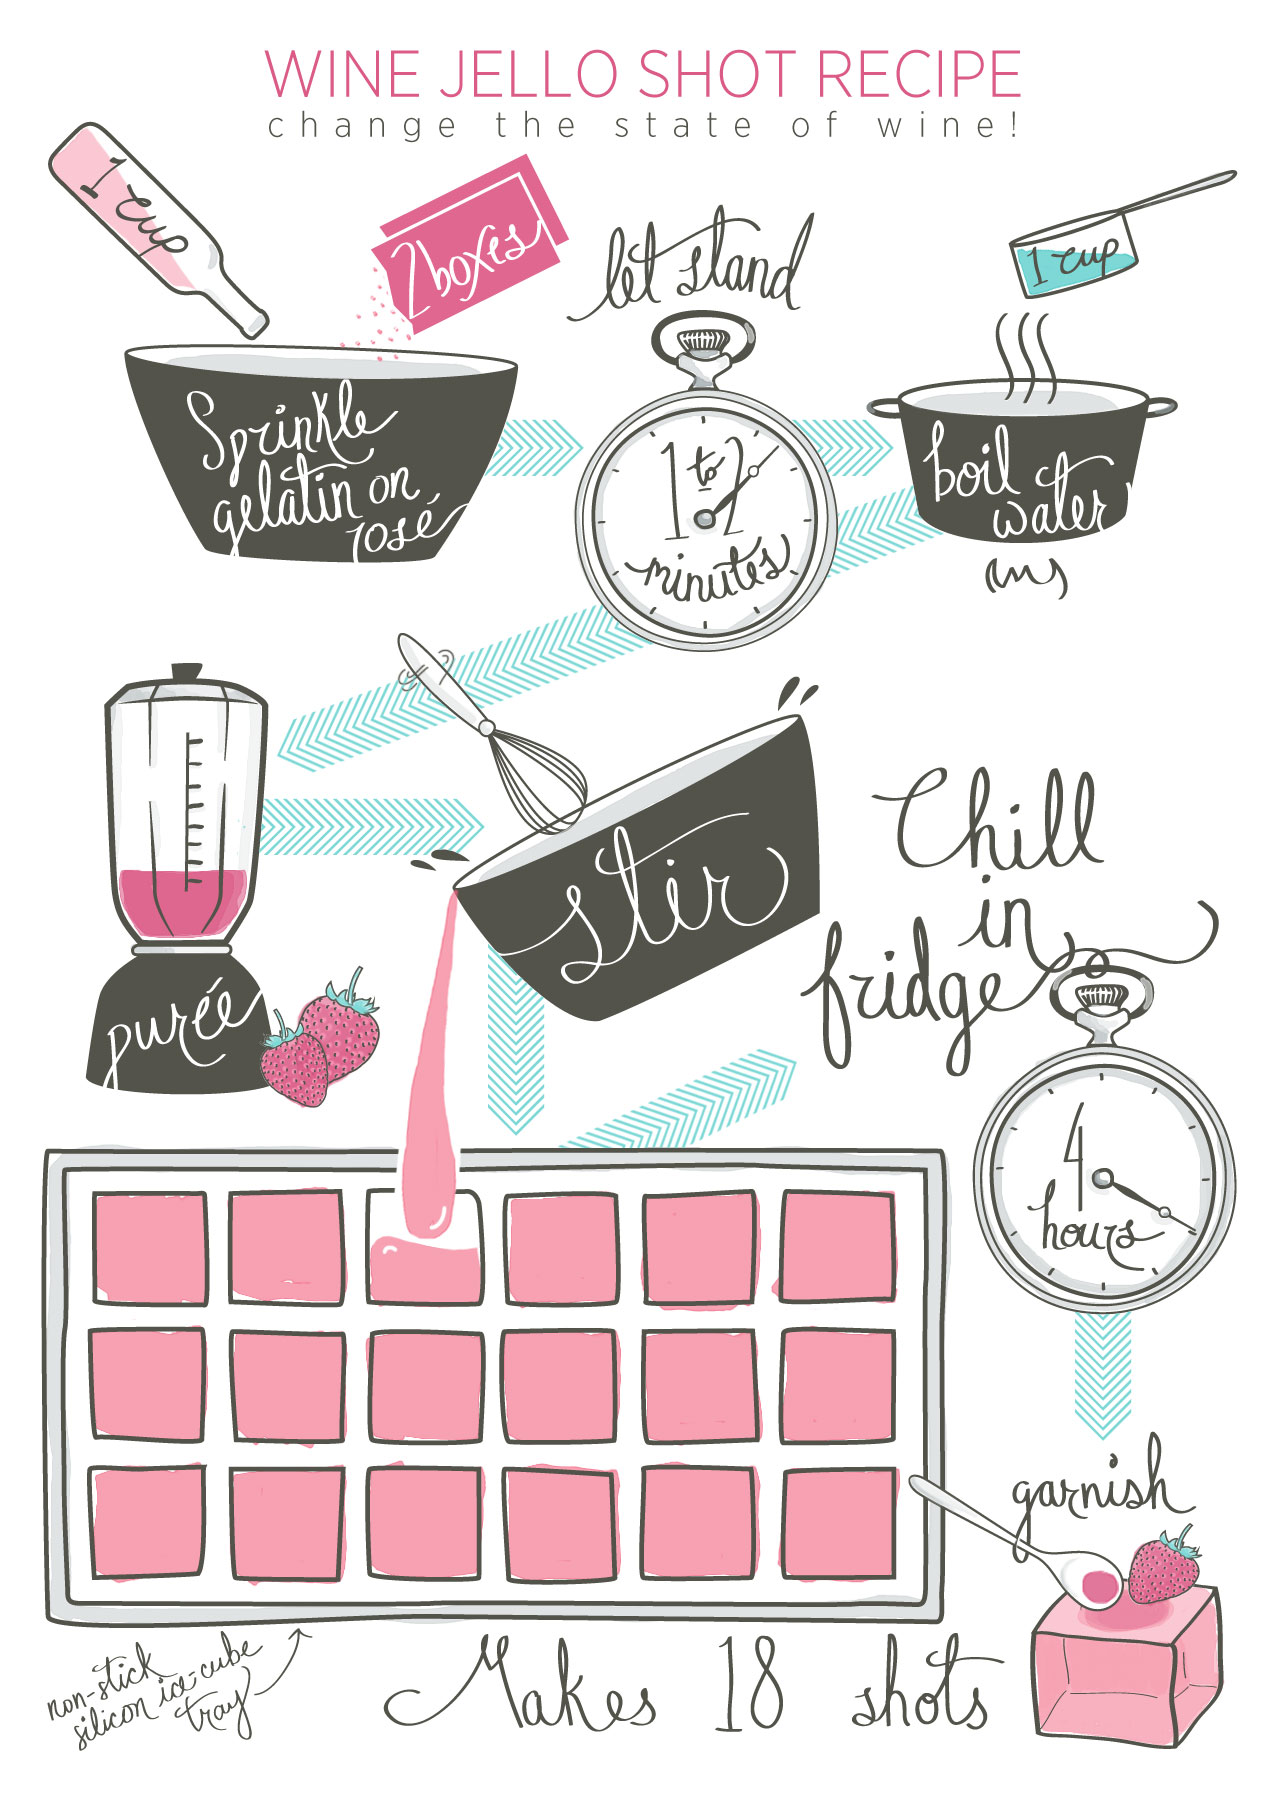 WINE JELLO SHOT RECIPE
change the state of wine!
1 cup
2 boxes
Sprinkle
gelatin on
rosé
let stand
1 to 2
minutes
1 cup
boil
water
purée
stir
Chill
in
fridge
4
hours
garnish
non-stick
silicon ice-cube
tray
Makes 18 shots